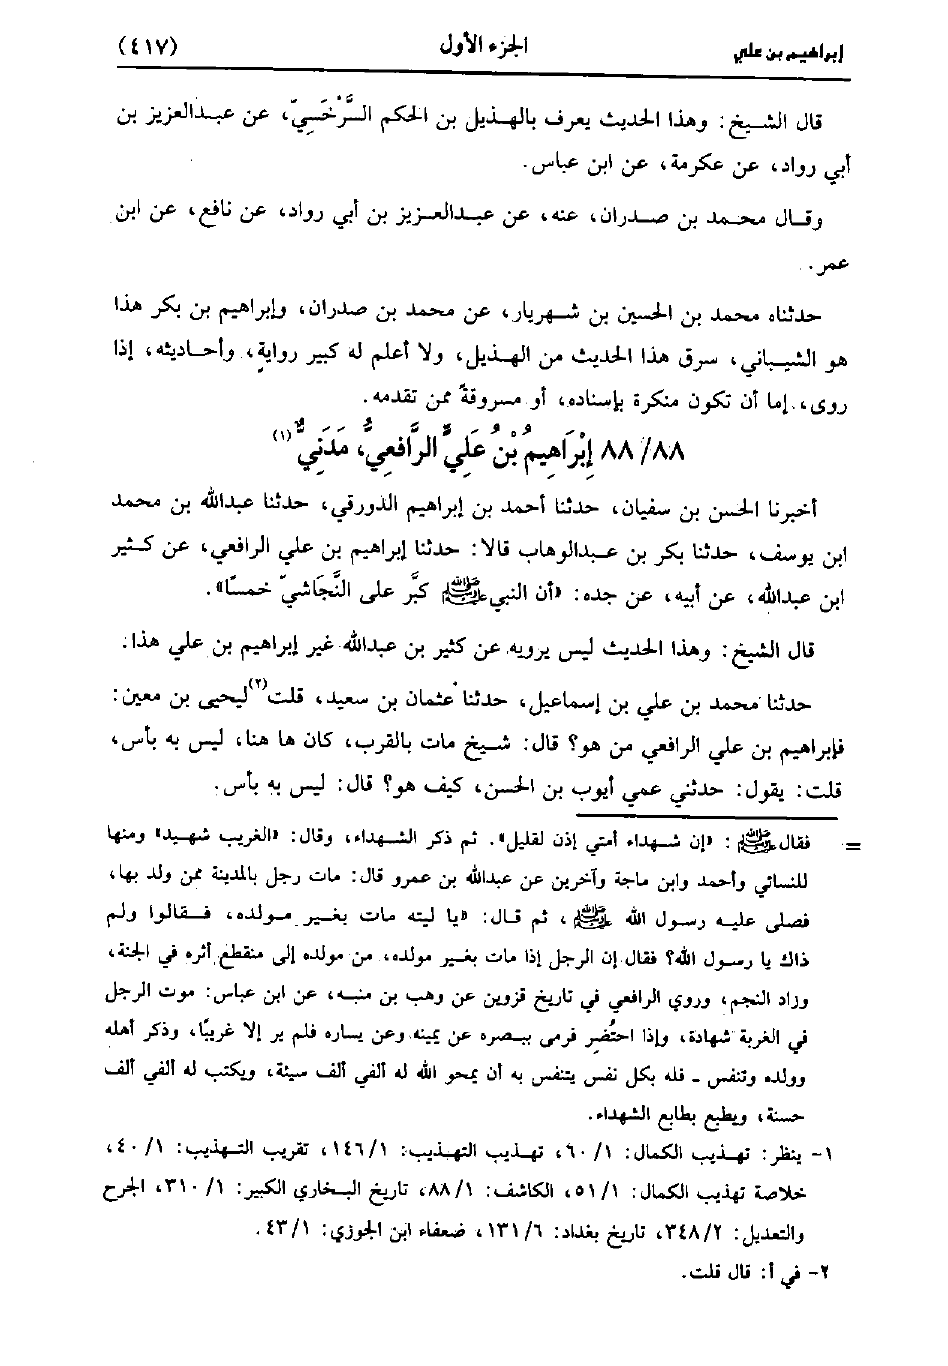 إبراهيم بن علي الجزء الأول (٤١٧)
قال الشيخ: وهذا الحديث يعرف بالهذيل بن الحكم الرَّخْسِيّ، عن عبدالعزيز بن
أبي رواد، عن عكرمة، عن ابن عباس.
وقال محمد بن صدران، عنه، عن عبدالعزيز بن أبي رواد، عن نافع، عن ابن
عمر.
حدثناه محمد بن الحسين بن شهريار، عن محمد بن صدران، وإبراهيم بن بكر هذا
هو الشيباني، سرق هذا الحديث من الهذيل، ولا أعلم له كبير روايةٍ، وأحاديثه، إذا
روى، إما أن تكون منكرة بإسناده، أو مسروقةً ممن تقدمه.
٨٨/ ٨٨ إِبْرَاهِيمُ بْنُ عَلِيٍّ الرَّافِعِيُّ، مَدَنِيٌّ(١)
أخبرنا الحسن بن سفيان، حدثنا أحمد بن إبراهيم الدورقي، حدثنا عبدالله بن محمد
ابن يوسف، حدثنا بكر بن عبدالوهاب قالا: حدثنا إبراهيم بن علي الرافعي، عن كثير
ابن عبدالله، عن أبيه، عن جده: «أن النبي ﷺ كبَّر على النَّجَاشيّ خمسًا».
قال الشيخ: وهذا الحديث ليس يرويه عن كثير بن عبدالله غير إبراهيم بن علي هذا.
حدثنا محمد بن علي بن إسماعيل، حدثنا عثمان بن سعيد، قلت(٢) ليحيى بن معين:
فإبراهيم بن علي الرافعي من هو؟ قال: شيخ مات بالقرب، كان ها هنا، ليس به بأس،
قلت: يقول: حدثني عمي أيوب بن الحسن، كيف هو؟ قال: ليس به بأس.
= فقال ﷺ: «إن شهداء أمتي إذن لقليل». ثم ذكر الشهداء، وقال: «الغريب شهيد» ومنها
للنسائي وأحمد وابن ماجة وآخرين عن عبدالله بن عمرو قال: مات رجل بالمدينة ممن ولد بها،
فصلى عليه رسول الله ﷺ، ثم قال: «يا ليته مات بغير مولده، فقالوا ولم
ذاك يا رسول الله؟ فقال إن الرجل إذا مات بغير مولده، من مولده إلى منقطع أثره في الجنة،
وزاد النجم، وروي الرافعي في تاريخ قزوين عن وهب بن منبه، عن ابن عباس: موت الرجل
في الغربة شهادة، وإذا احتُضِر فرمى ببصره عن يمينه وعن يساره فلم ير إلا غريبًا، وذكر أهله
وولده وتنفس - فله بكل نفس يتنفس به أن يمحو الله له ألفي ألف سيئة، ويكتب له ألفي ألف
حسنة، ويطبع بطابع الشهداء.
١- ينظر: تهذيب الكمال: ١/ ٦٠، تهذيب التهذيب: ١/ ١٤٦، تقريب التهذيب: ١/ ٤٠،
خلاصة تهذيب الكمال: ١/ ٥١، الكاشف: ١/ ٨٨، تاريخ البخاري الكبير: ١/ ٣١٠، الجرح
والتعديل: ٢/ ٣٤٨، تاريخ بغداد: ٦/ ١٣١، ضعفاء ابن الجوزي: ١/ ٤٣.
٢- في أ: قال قلت.